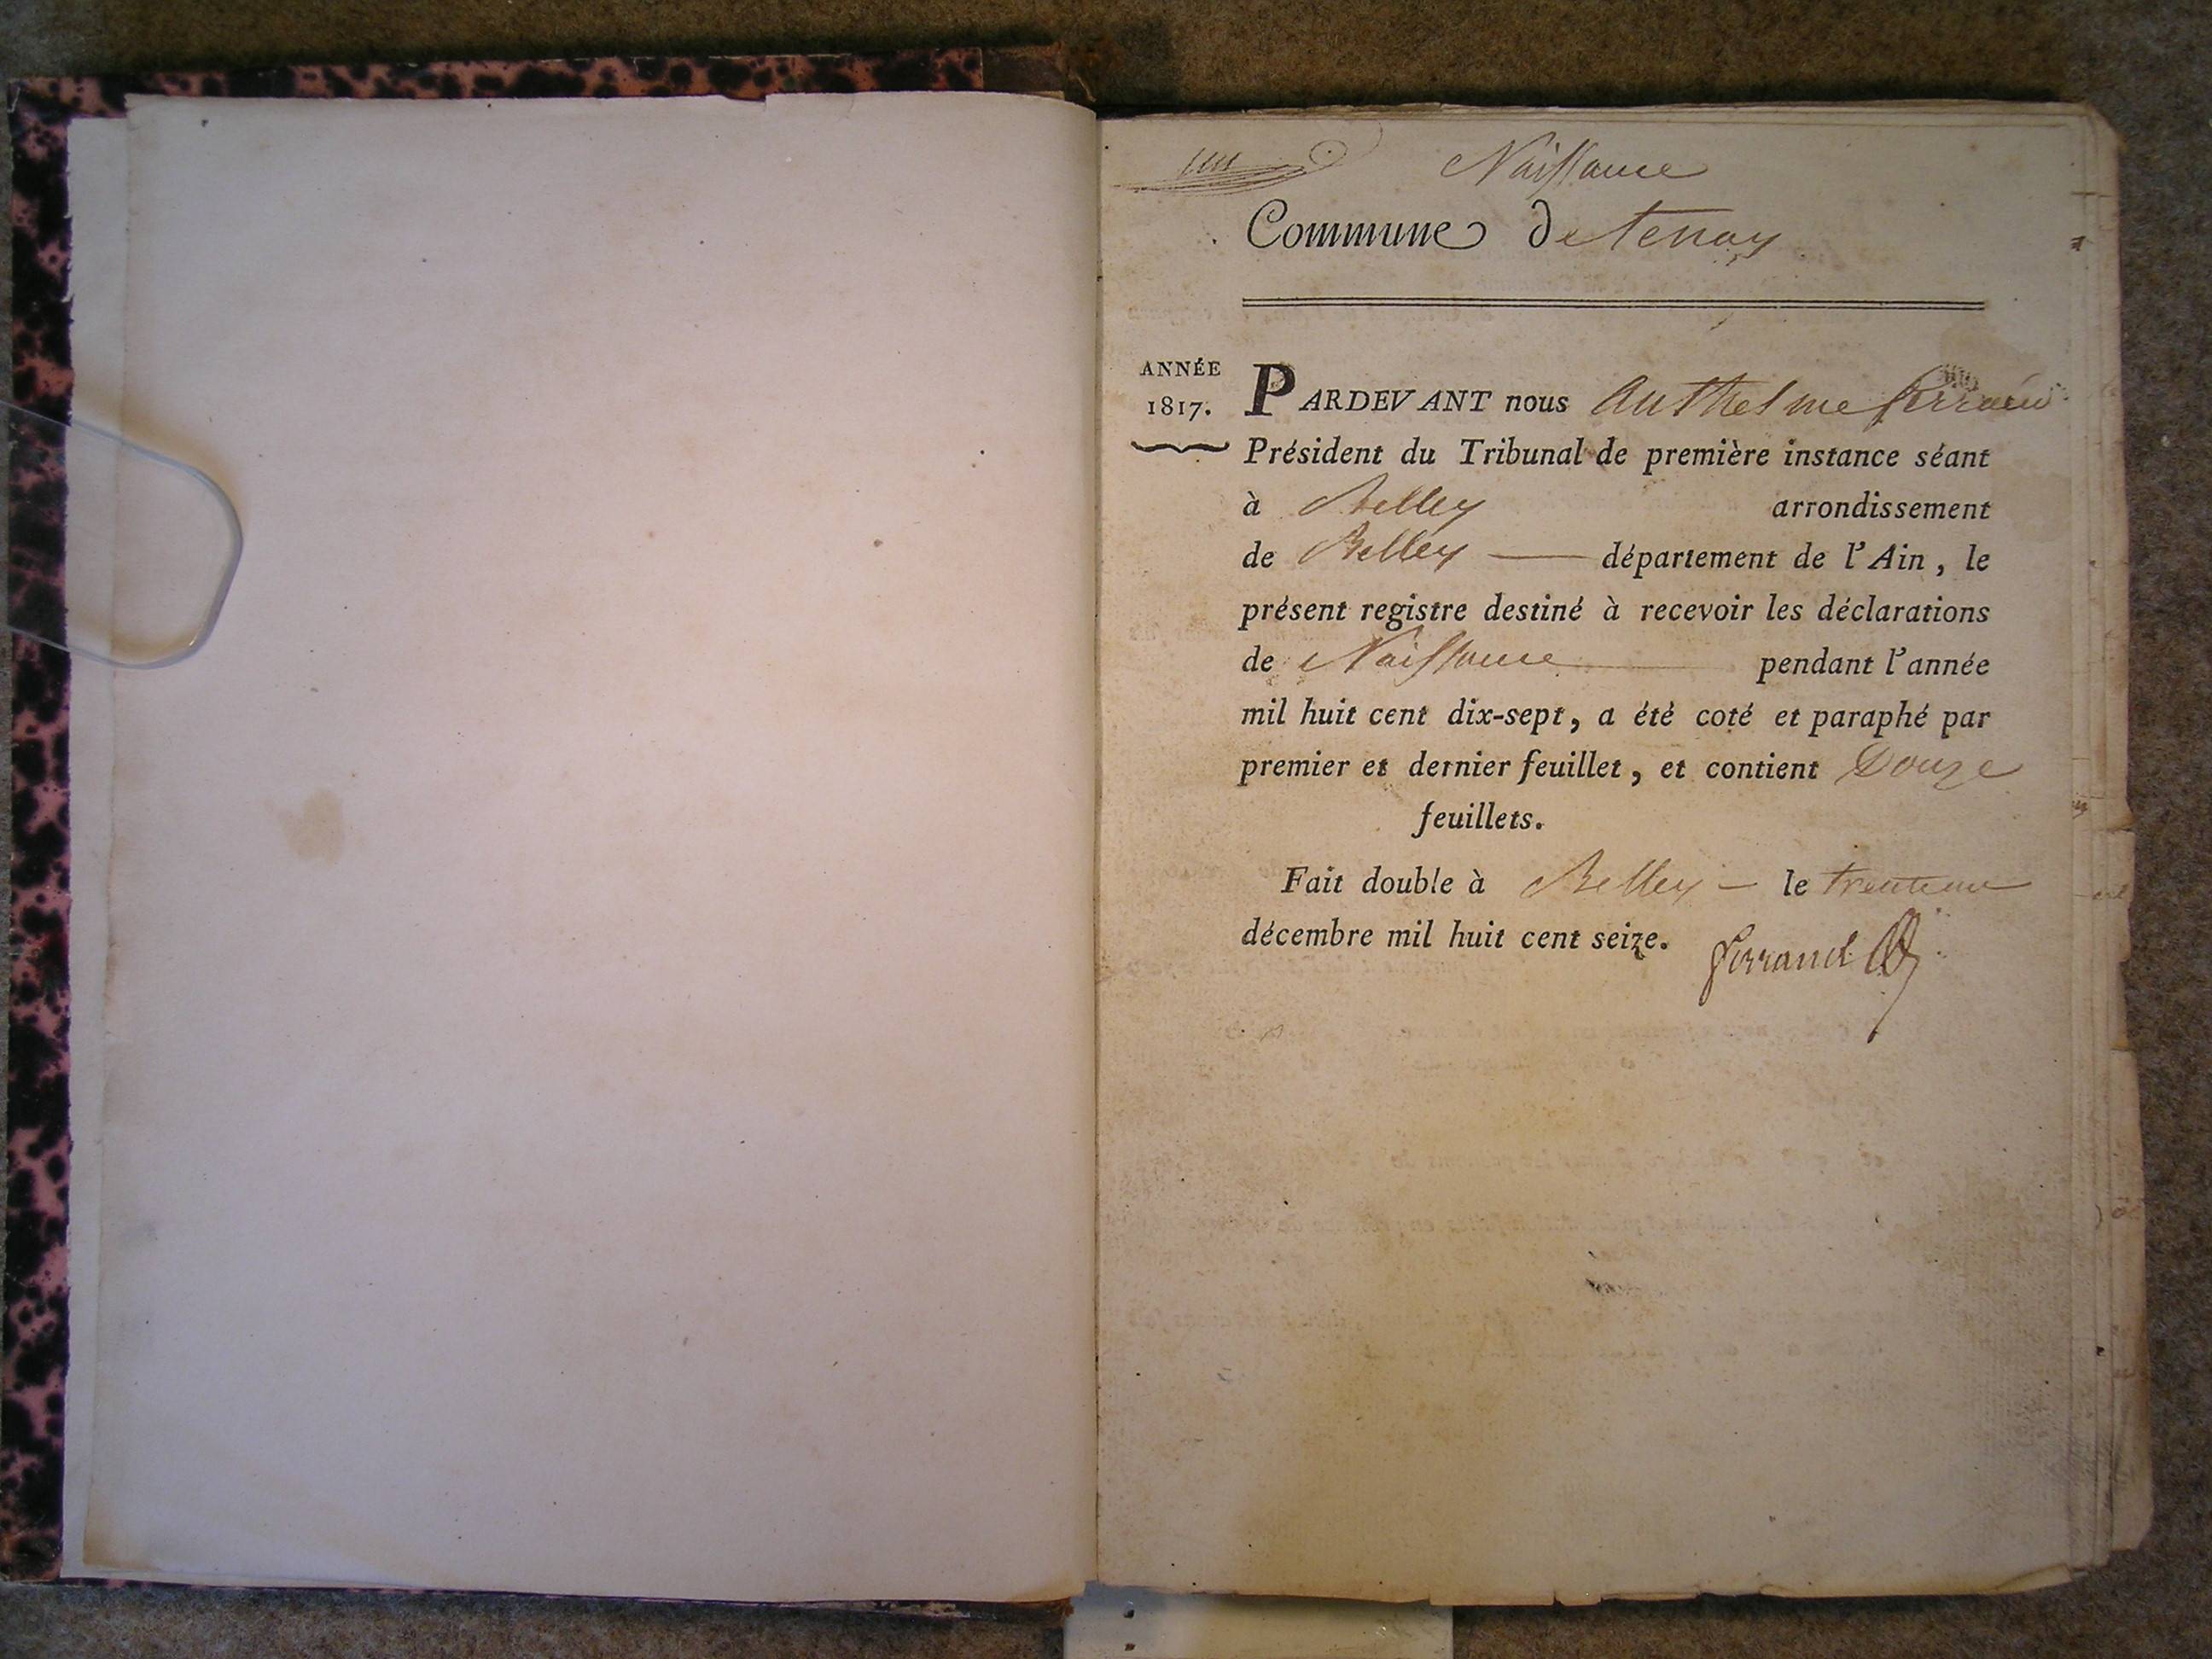 Naissance
Commune de tenay
ANNÉE
1817.
PARDEVANT nous Anthelme ferrand
Président du Tribunal de première instance séant
à Belley arrondissement
de Belley département de l'Ain, le
présent registre destiné à recevoir les déclarations
de Naissance pendant l'année
mil huit cent dix-sept, a été coté et paraphé par
premier et dernier feuillet, et contient Douze
feuillets.
Fait double à Belley le trente un
décembre mil huit cent seize.
ferrand